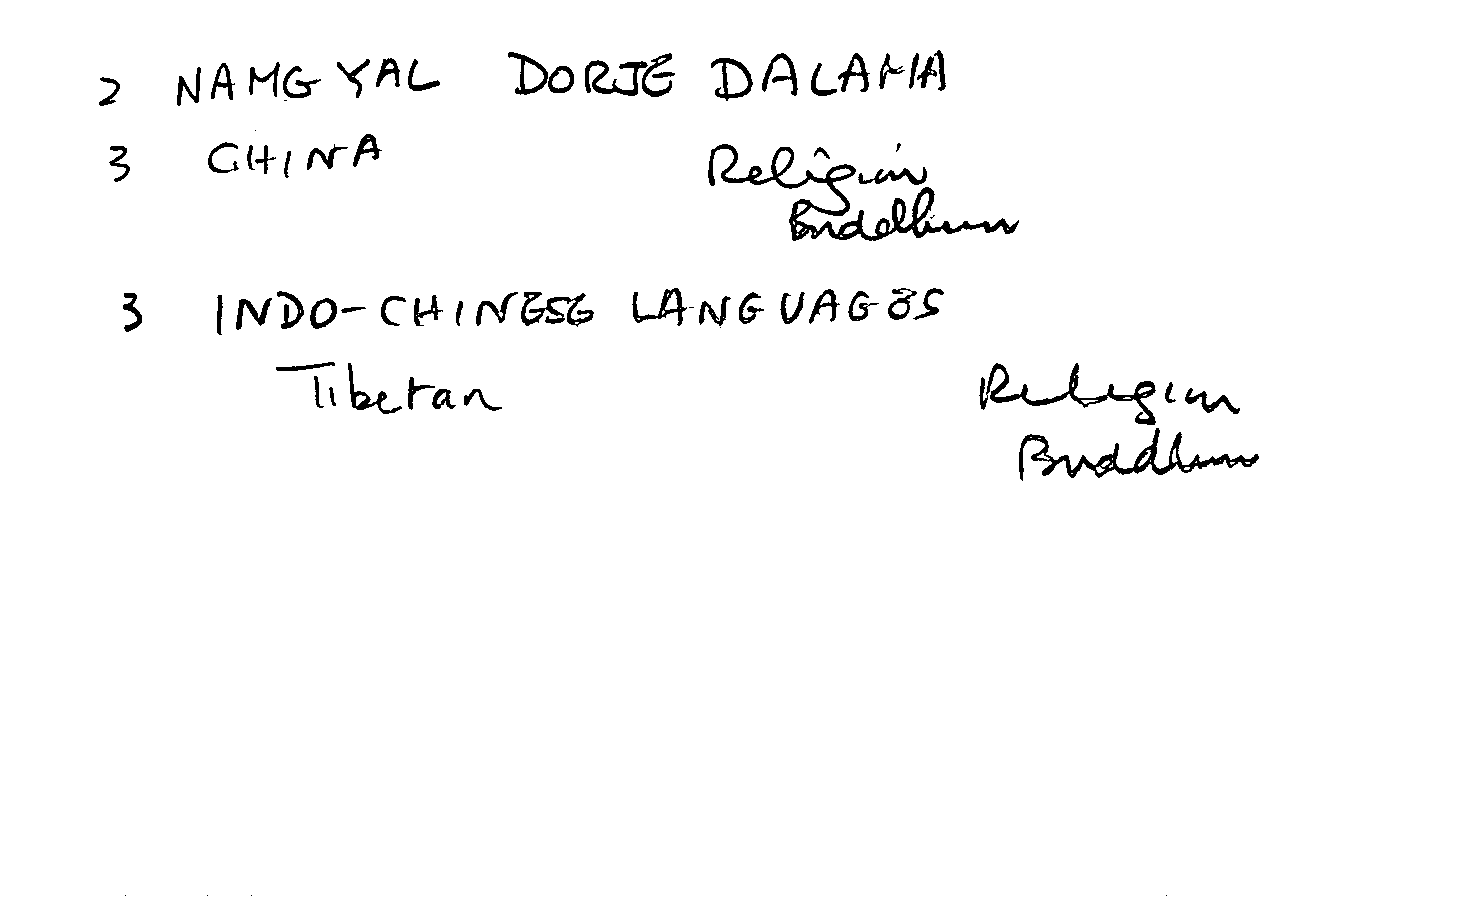 2 NAMGYAL DORJE DALAMA
3 CHINA Religion
Buddhism
3 INDO-CHINESE LANGUAGES
Tibetan Religion
Buddhism